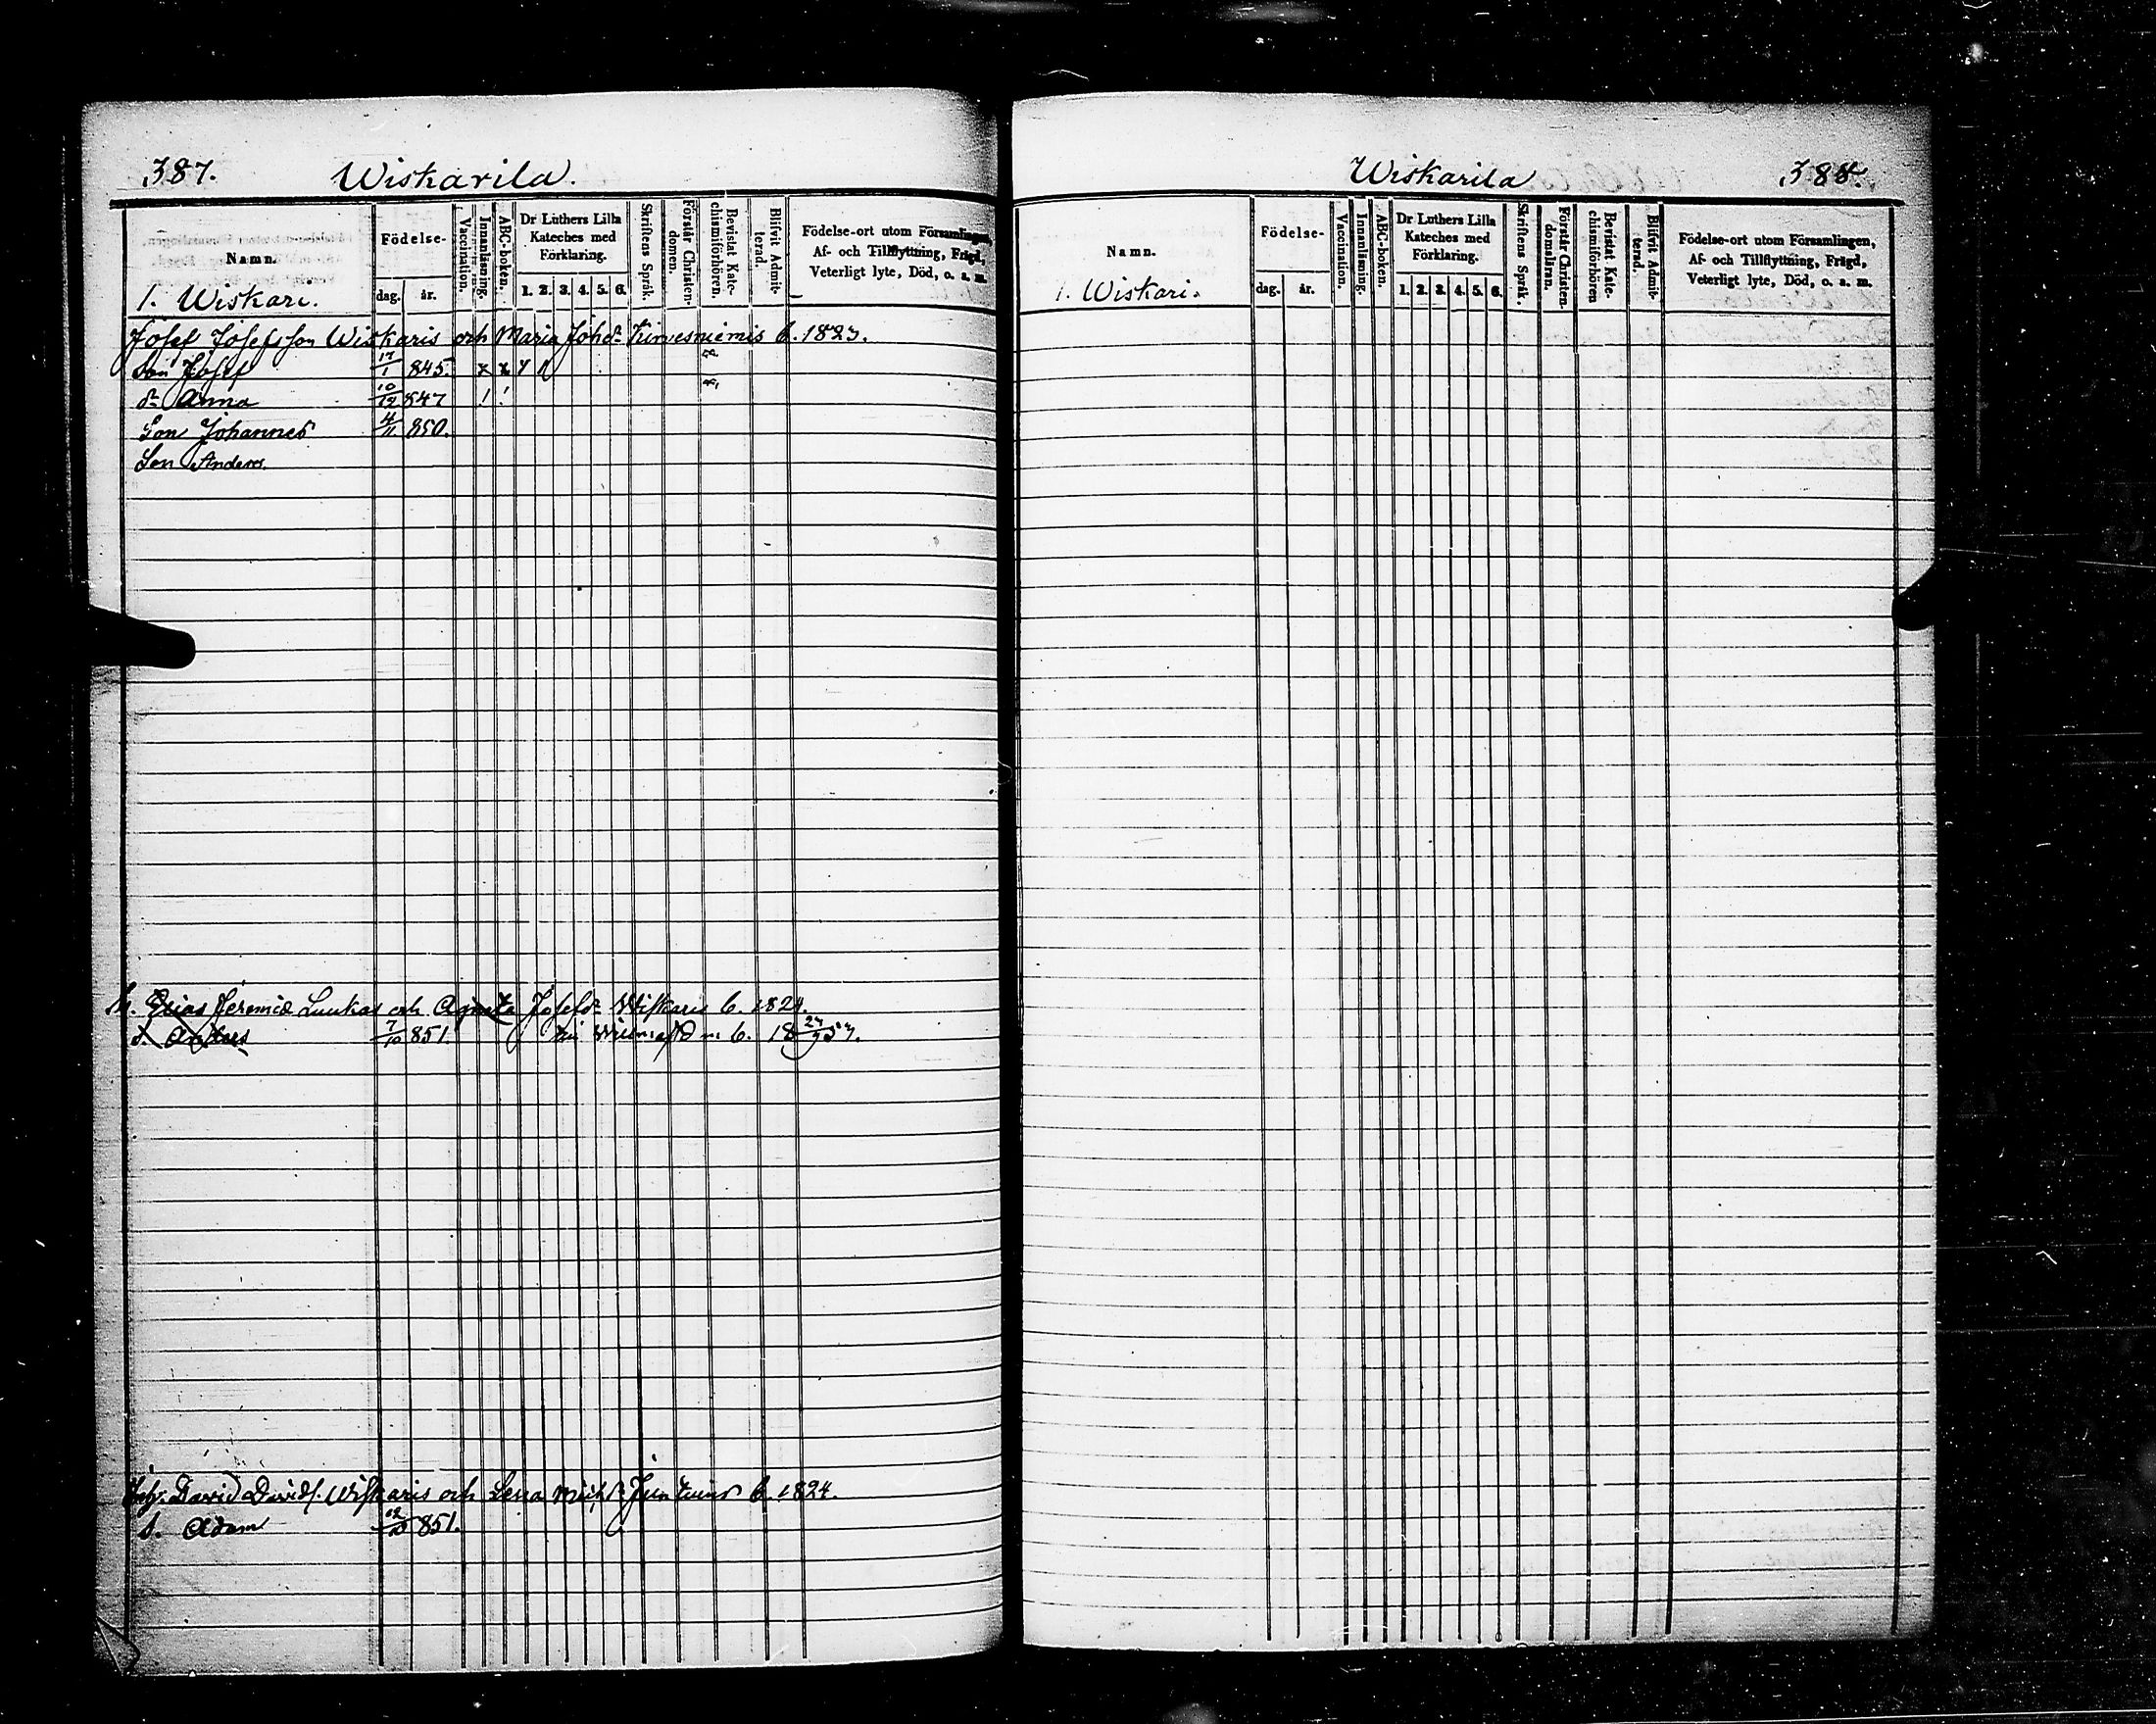 387. Wiskarila.
Namn.
1. Wiskari.
Födelse-
dag. år.
Vaccination.
Innanläsning.
ABC-boken.
Dr Luthers Lilla
Kateches med
Förklaring.
1. 2. 3. 4. 5. 6.
Skriftens Språk.
Förstår Christen-
domen.
Bevistat Kate-
chismiförhören.
Blifvit Admit-
terad.
Födelse-ort utom Församlingen,
Af- och Tillflyttning, Frägd,
Veterligt lyte, Död, o. a. m.
Josef Josefsson Wiskaris och Maria Johd. Kirvesniemis b. 1823.
Son Josef 17/1 845. x x
d. Anna 10/12 847
Son Johannes 4/11 850.
Son Anders.
Elias Jeremiæ Luukas och Agneta Josefsd. Wiskaris b. 1824.
s. Anders 7/10 851. b. 18 24/9 57.
David Davids. Wiskaris och Lena Mich. d. Junkuris b. 1824.
s. Adam 851.
Wiskarila 388.
Namn.
1. Wiskari.
Födelse-
dag. år.
Vaccination.
Innanläsning.
ABC-boken.
Dr Luthers Lilla
Kateches med
Förklaring.
1. 2. 3. 4. 5. 6.
Skriftens Språk.
Förstår Christen-
domsläran.
Bevistat Kate-
chismiförhören
Blifvit Admit-
terad.
Födelse-ort utom Församlingen,
Af- och Tillflyttning, Frägd,
Veterligt lyte, Död, o. a. m.